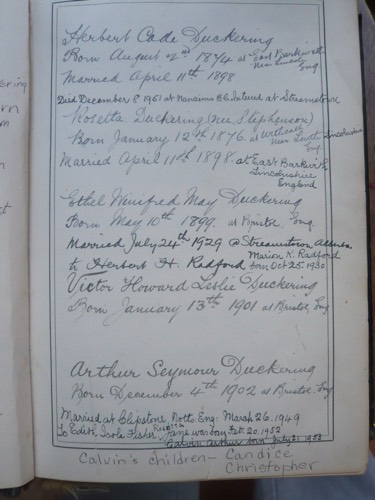 Herbert Cade Duckering
Born August 2nd 1874 at East Barkwith
Near Eng
Married April 11th 1898
Died December 8 1961 at Nanaimo BC Intered at Streamstown
Rosetta Duckering (nee Stephenson)
Born January 12th 1876 at
near South Lincolnshire
Eng
Married April 11th 1898 at East Barkwith
Lincolnshire
England
Ethel Winifred May Duckering
Born May 10th 1899 at Bristol. Eng.
Married July 24th 1929 @ Streamstown Alberta
to Herbert H. Radford
Marion K. Radford
born Oct 25. 1930
Victor Howard Leslie Duckering
Born January 13th 1901 at Bristol Eng
Arthur Seymour Duckering
Born December 4th 1902 at Bristol Eng
Married at Clipstone Notts. Eng: March 26. 1949
to Edith Isola Fisher Jane was born Feb. 20. 1952
Calvin Arthur born July 21 1953
Calvin's children - Candice
Christopher